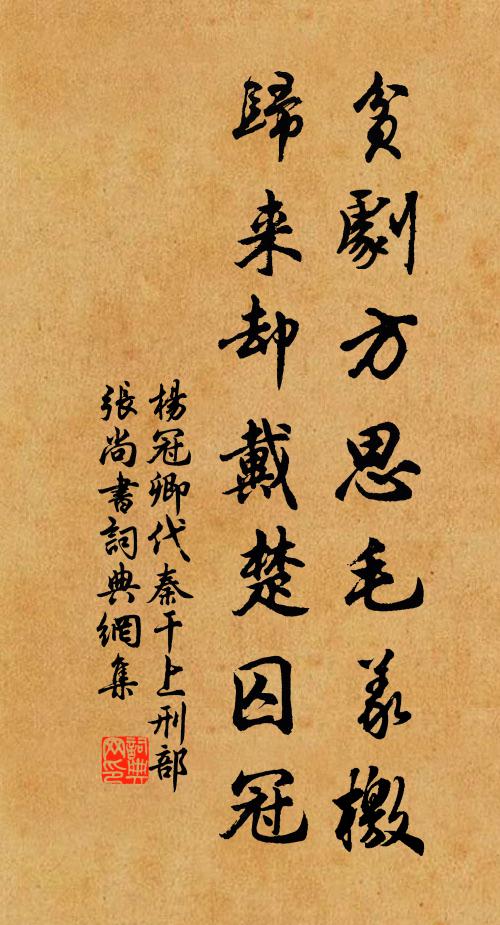 貧劇方思毛義檄
歸来却戴楚囚冠
楊冠卿代秦干上刑部
張尚書詞典網集
詞典網印